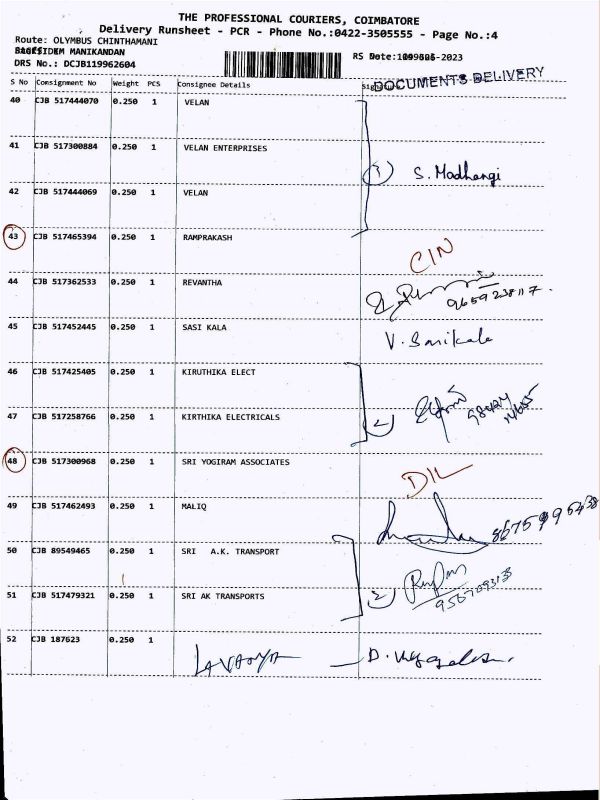 THE PROFESSIONAL COURIERS, COIMBATORE
Delivery Runsheet - PCR - Phone No.:0422-3505555 - Page No.:4
Route: OLYMBUS CHINTHAMANI
MANIKANDAN
DRS No.: DCJB119962604
RS
-2023
DOCUMENTS DELIVERY
S No Consignment No Weight PCS Consignee Details
40 CJB 517444070 0.250 1 VELAN
41 CJB 517300884 0.250 1 VELAN ENTERPRISES
3 S. Madhangi
42 CJB 517444069 0.250 1 VELAN
43 CJB 517465394 0.250 1 RAMPRAKASH
CIN
44 CJB 517362533 0.250 1 REVANTHA
9659238117.
45 CJB 517452445 0.250 1 SASI KALA
V. Sasikala
46 CJB 517425405 0.250 1 KIRUTHIKA ELECT
47 CJB 517258766 0.250 1 KIRTHIKA ELECTRICALS
2
48 CJB 517300968 0.250 1 SRI YOGIRAM ASSOCIATES
DIL
49 CJB 517462493 0.250 1 MALIQ
50 CJB 89549465 0.250 1 SRI A.K. TRANSPORT
51 CJB 517479321 0.250 1 SRI AK TRANSPORTS
2
52 CJB 187623 0.250 1
LAVANYA